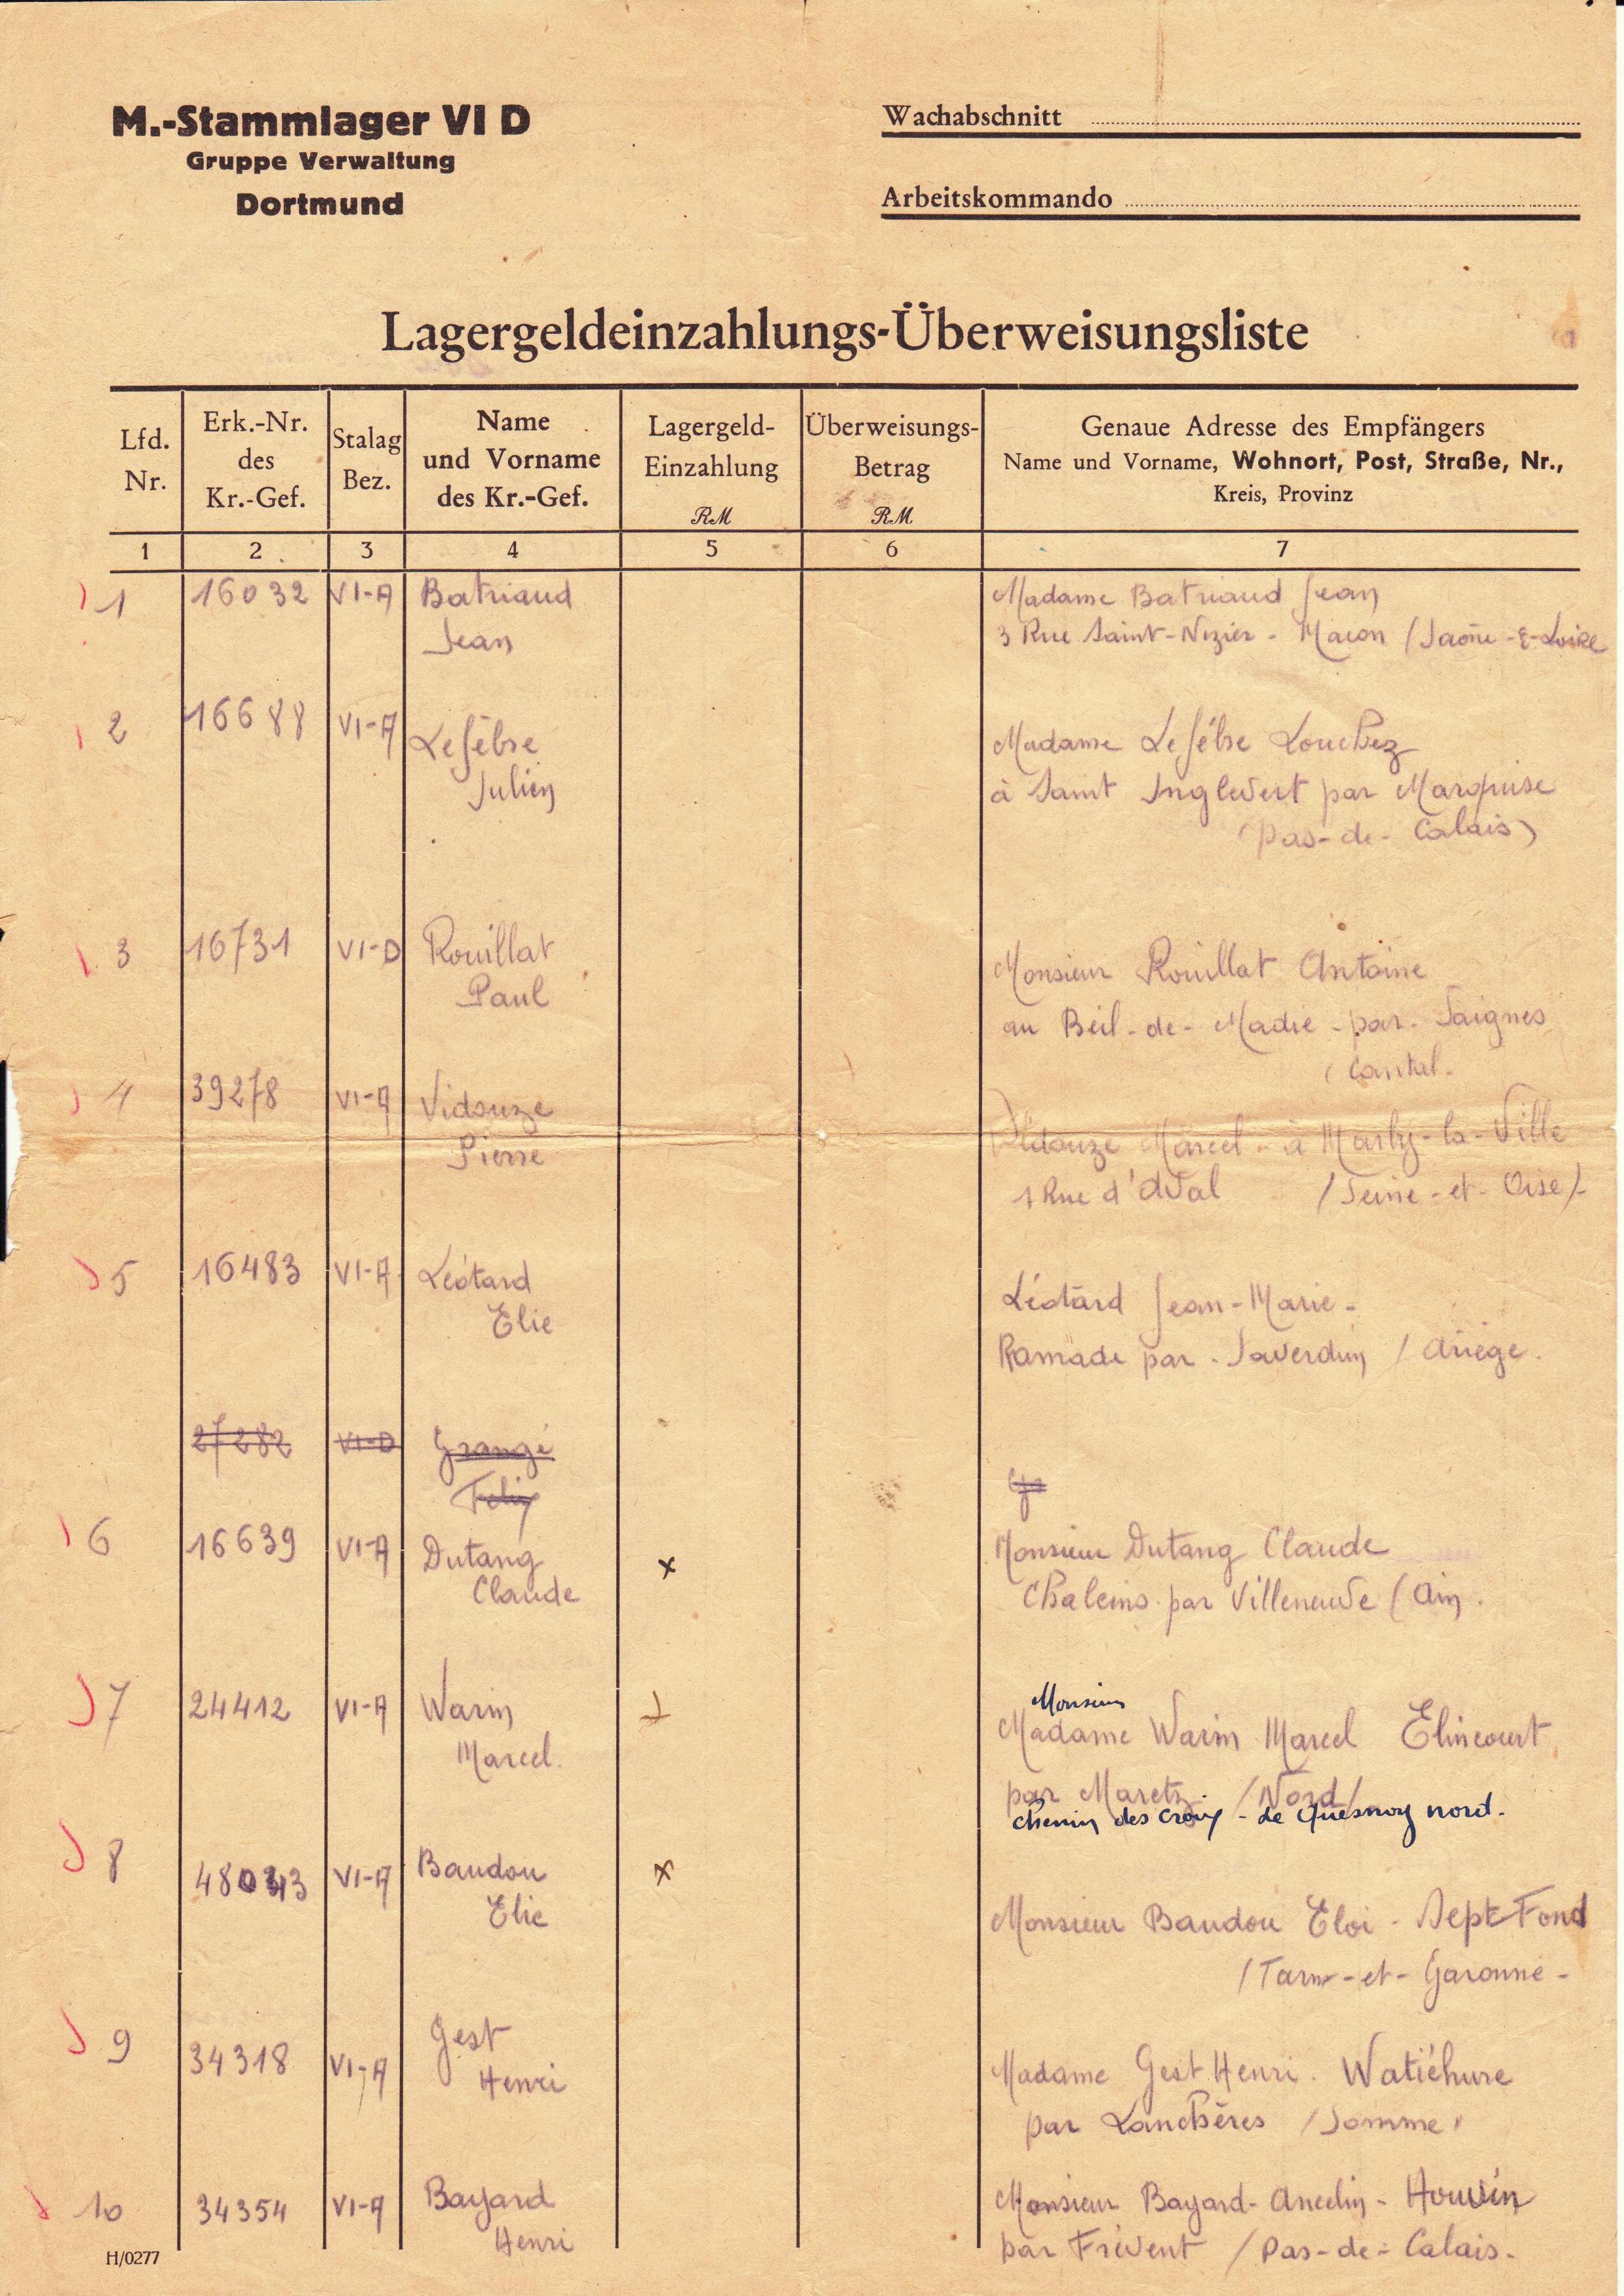 M.-Stammlager VI D
Gruppe Verwaltung
Dortmund
Wachabschnitt
Arbeitskommando
Lagergeldeinzahlungs-Überweisungsliste
Lfd. Nr.
Erk.-Nr. des Kr.-Gef.
Stalag Bez.
Name und Vorname des Kr.-Gef.
Lagergeld-Einzahlung RM
Überweisungs-Betrag RM
Genaue Adresse des Empfängers
Name und Vorname, Wohnort, Post, Straße, Nr.,
Kreis, Provinz
1 2 3 4 5 6 7
1 16032 VI-A Batriaud Madame Batriaud Jean
Jean 3 Rue Saint-Nizier - Macon / Saône-&-Loire
2 16688 VI-A Lefébre Madame Lefébre Louchez
Julien à Saint Inglevert par Marquise
(Pas-de-Calais)
3 16731 VI-D Rouillat Monsieur Rouillat Antoine
Paul au Beil-de-Madie - par - Saignes
( Cantal -
4 39278 VI-A Vidouze Vidouze Marcel - à Marly-la-Ville
Pierre 1 Rue d'Aval / Seine-et-Oise /-
5 16483 VI-A Léotard Léotard Jean-Marie -
Elie Ramade par - Saverdun / Ariège.
27282 VI-D Grangé
Felix
6 16639 VI-A Dutang x Monsieur Dutang Claude
Claude Chaleins par Villeneuve ( Ain .
Monsieur
7 24412 VI-A Warin Madame Warin Marcel Elincourt
Marcel. par Maretz. / Nord /
Chemin des Croix - Le Quesnoy nord.
8 VI-A Baudou x Monsieur Baudou Eloi - Sept Fond
Elie / Tarn-et-Garonne -
9 34318 VI-A Gest Madame Gest Henri. Watiéhure
Henri par Lanchères / Somme /
10 34354 VI-A Bayard Monsieur Bayard-Ancelin - Houvin
Henri par Frévent / Pas-de-Calais-
H/0277